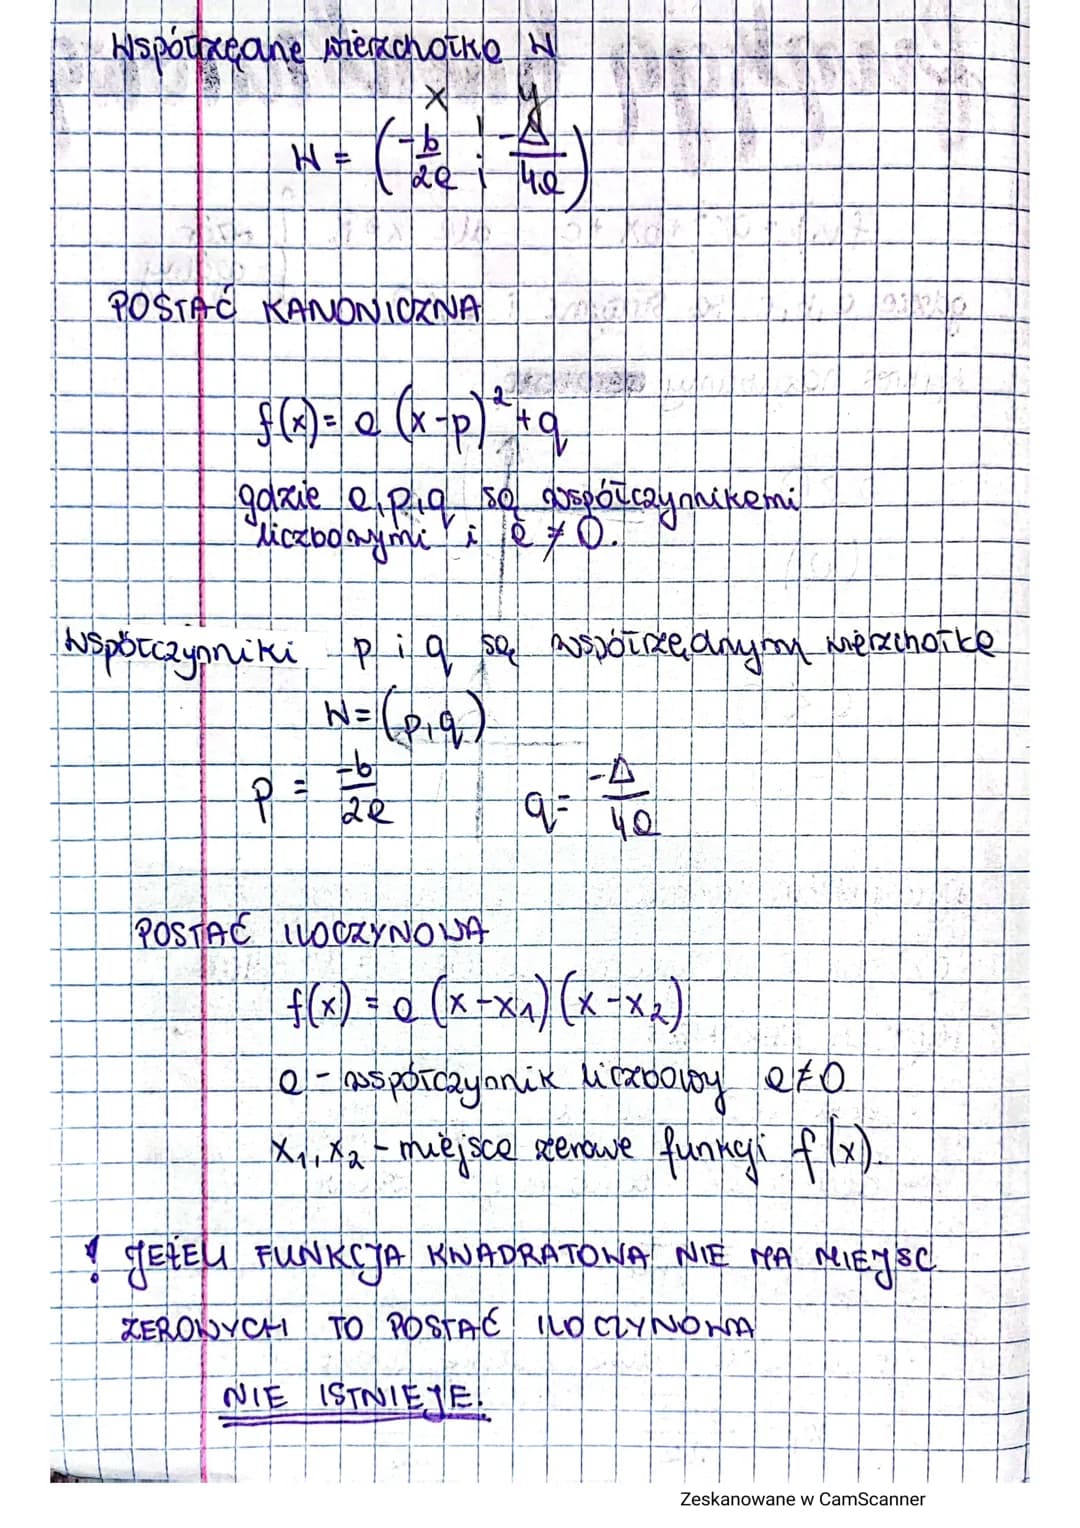 Współrzędne wierzchołka W
x y
W = (-b/2a ; -Δ/4a)
POSTAĆ KANONICZNA
f(x) = a (x-p)² + q
gdzie a,p,q są współczynnikami
liczbowymi i a ≠ 0.
Współczynniki p i q są współrzędnymi wierzchołka
W = (p,q)
p = -b/2a q = -Δ/4a
POSTAĆ ILOCZYNOWA
f(x) = a (x-x₁)(x-x₂)
a - współczynnik liczbowy a≠0
x₁, x₂ - miejsca zerowe funkcji f(x).
! JEŻELI FUNKCJA KWADRATOWA NIE MA MIEJSC
ZEROWYCH TO POSTAĆ ILOCZYNOWA
NIE ISTNIEJE.
Zeskanowane w CamScanner